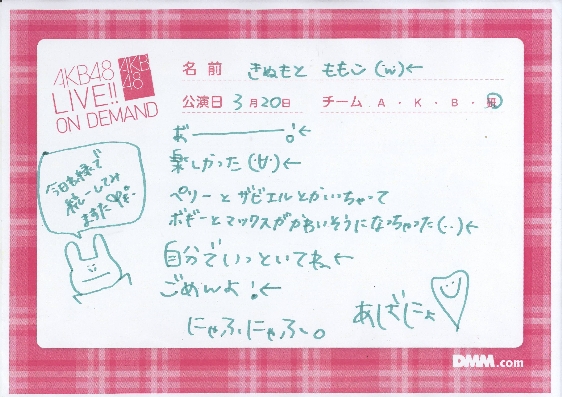 AKB48
LIVE!!
ON DEMAND
AKB
48
名前 きぬもと ももこ(w)←
公演日 3月20日 チーム A・K・B・研
お————!←
楽しかった(·∀·)←
ペリーとザビエルとかいっちゃって
ボギーとマックスがかわいそうになっちゃった(··)←
自分でいっといてね←
ごめんよ!←
にゃふにゃふ〜。
あしざにょ
今日も様で
統一してみ
ました
DMM.com